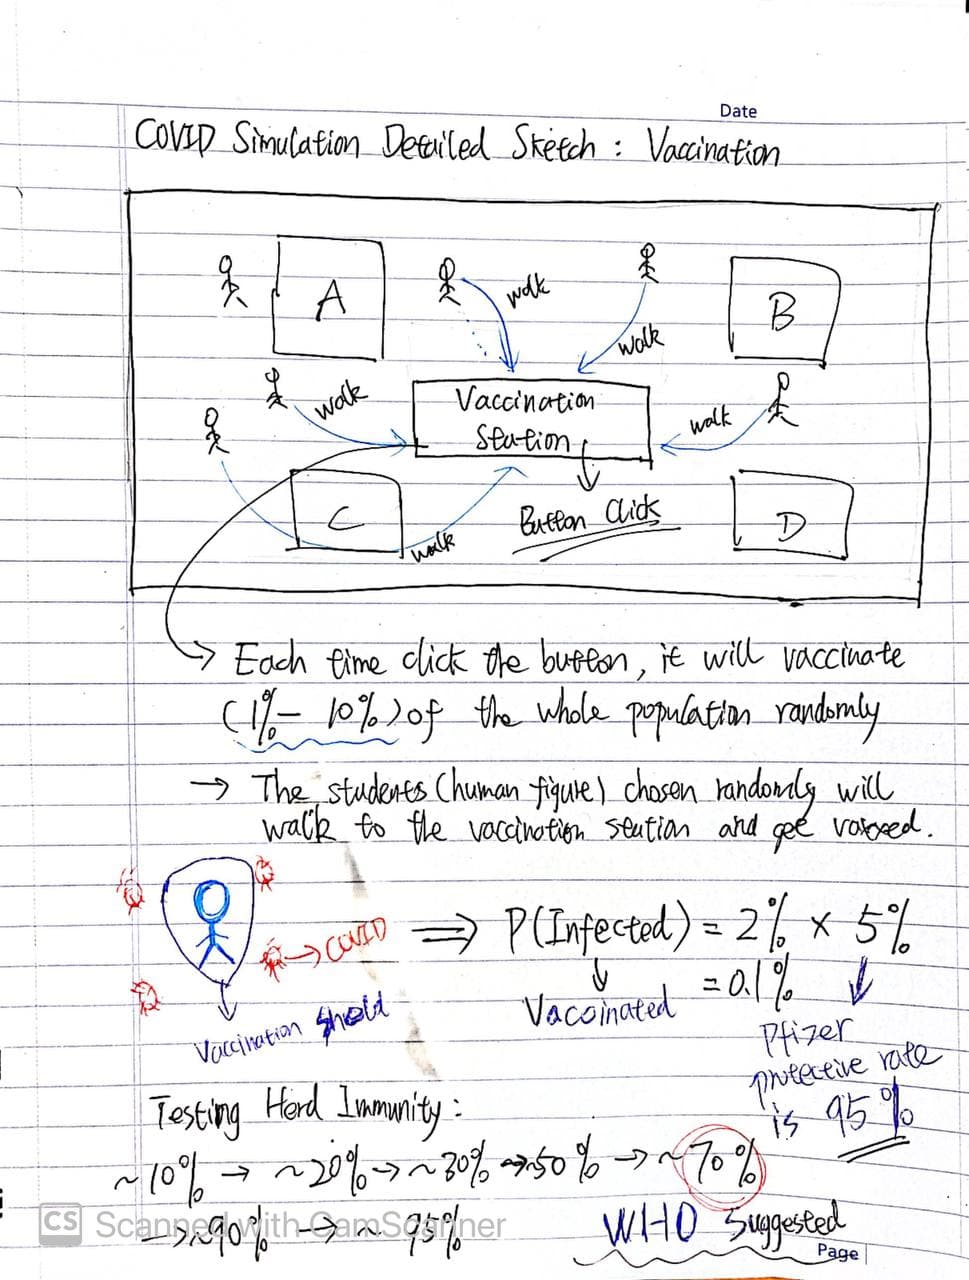 Date
COVID Simulation Detailed Sketch : Vaccination
A
walk
walk
B
walk
Vaccination
Station
walk
C
walk
Button Click
D
→ Each time click the button, it will vaccinate
(1% - 10%) of the whole population randomly
→ The students (human figure) chosen randomly will
walk to the vaccination station and get vaxxed.
→ COVID
⇒ P(Infected) = 2% × 5%
= 0.1%
Vaccinated
Vaccination Shield
Pfizer
protective rate
is 95%
Testing Herd Immunity :
~10% → ~20% → ~30% → ~50% → ~70%
→ ~90% → ~95%
WHO Suggested
CS Scanned with CamScanner
Page